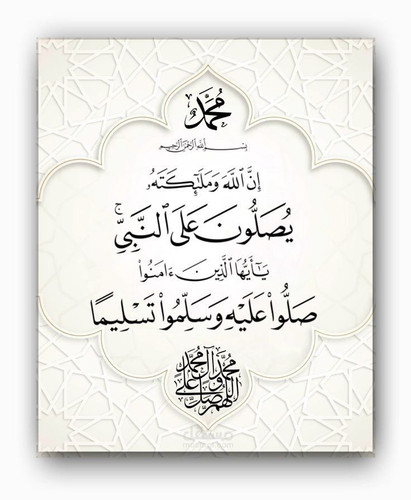 محمد
بسم الله الرحمن الرحيم
إِنَّ ٱللَّهَ وَمَلَـٰٓئِكَتَهُۥ
يُصَلُّونَ عَلَى ٱلنَّبِيِّ ۚ
يَـٰٓأَيُّهَا ٱلَّذِينَ ءَامَنُوا۟
صَلُّوا۟ عَلَيْهِ وَسَلِّمُوا۟ تَسْلِيمًا
اللهم صل على محمد وآل محمد